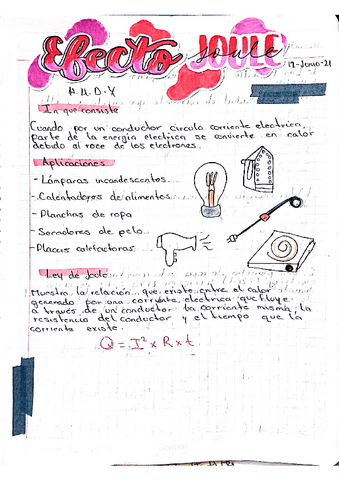 Efecto JOULE
17-Junio-21
A.U.D.Y
In que consiste
Cuando por un conductor circula corriente electrica,
parte de la energia electrica se convierte en calor
debido al roce de los electrones.
Aplicaciones
- Lámparas incandescentes
- Calentadores de alimentos
- Planchas de ropa
- Secadores de pelo
- Placas calefactoras
Ley de Joule
Muestra la relación que existe entre el calor
generado por una corriente electrica que fluye
a través de un conductor la corriente misma, la
resistencia del conductor y el tiempo que la
corriente existe.
Q = I² x R x t